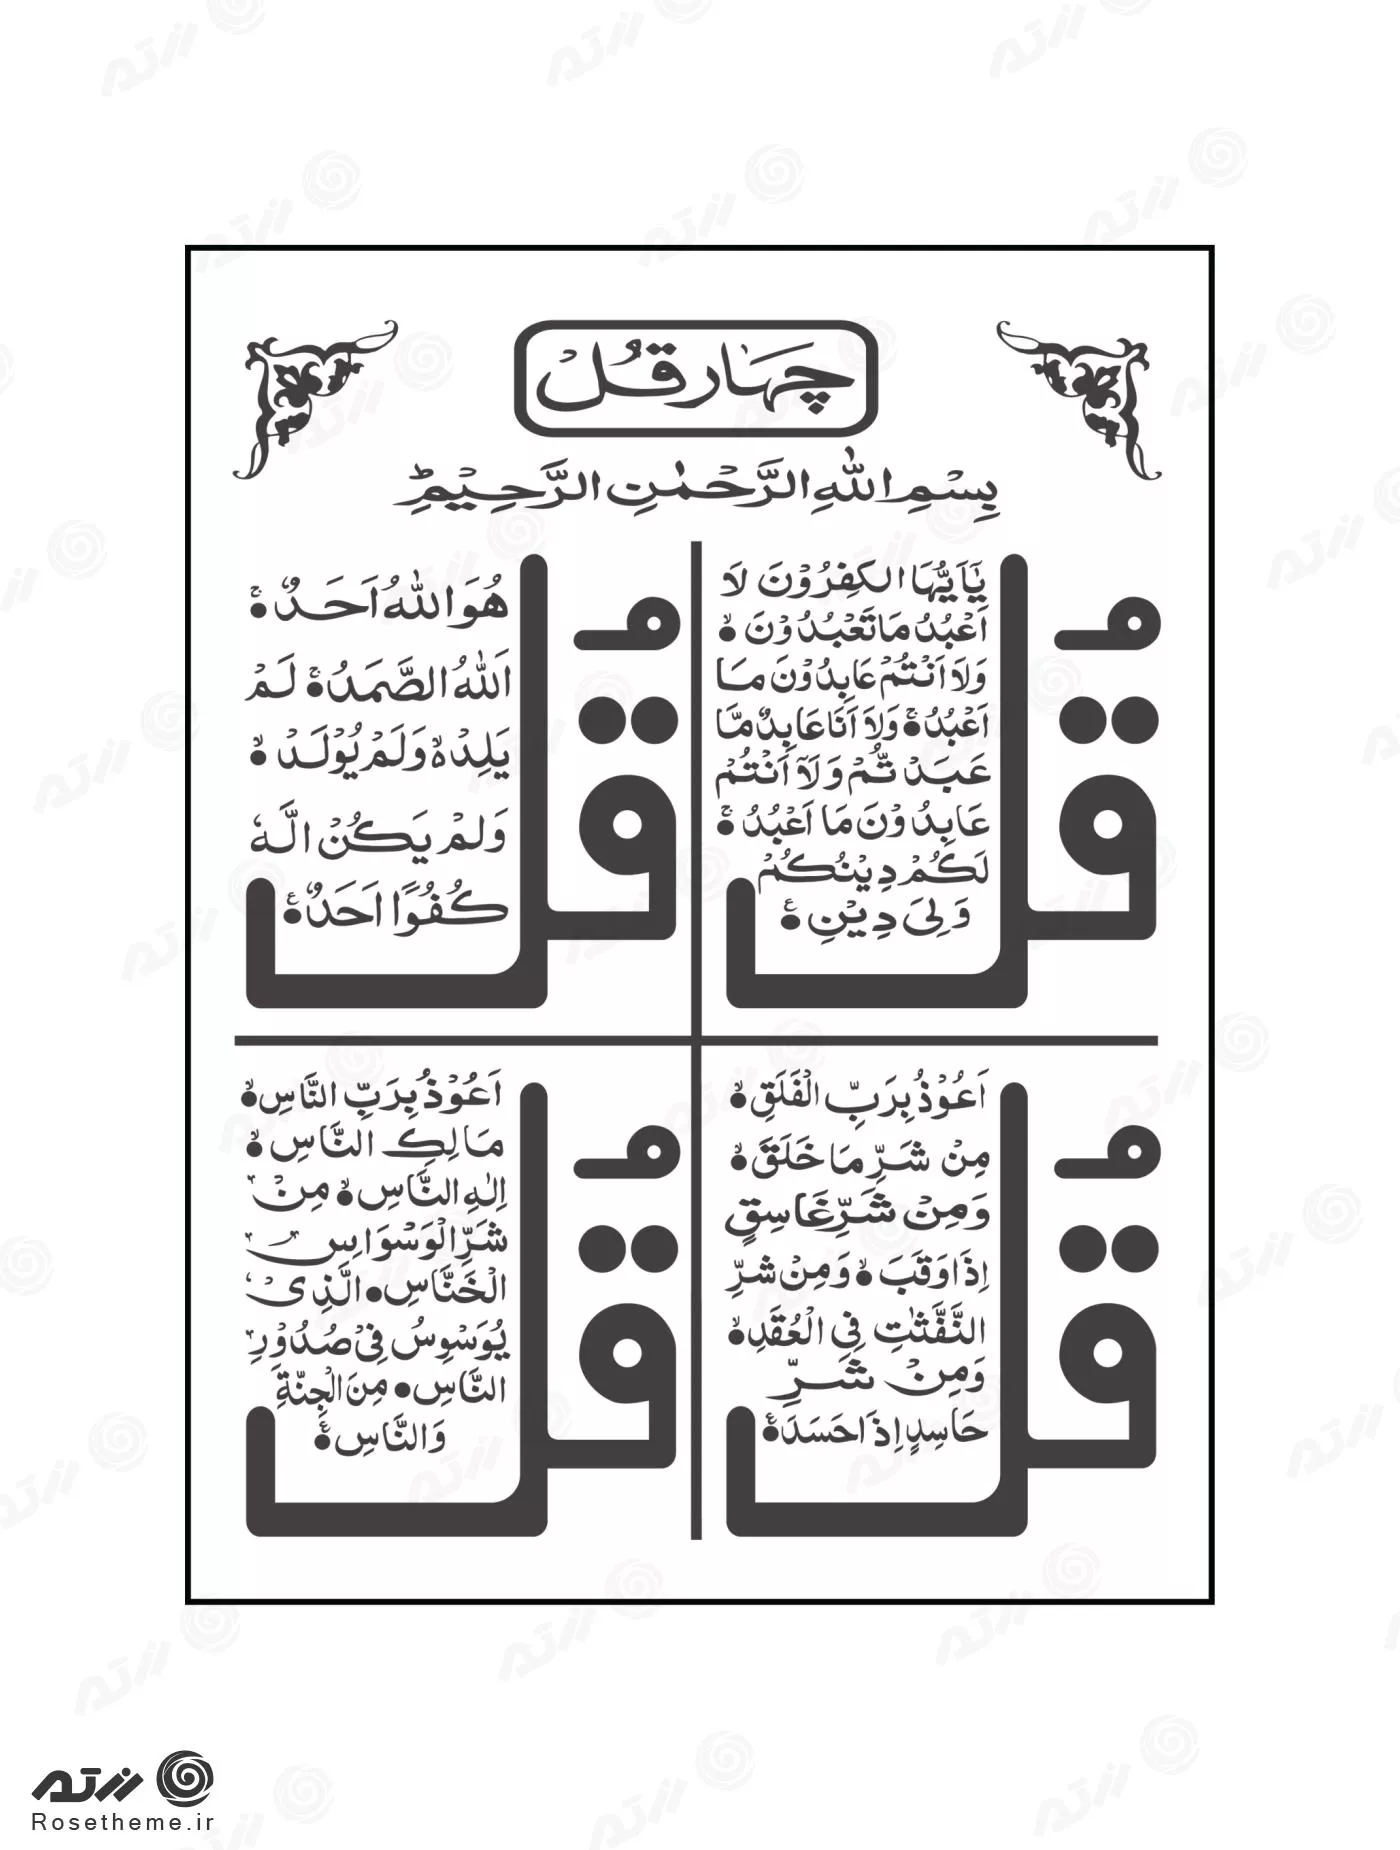 چہار قُلْ
بِسْمِ اللهِ الرَّحْمٰنِ الرَّحِيْمِ
قُلْ
يٰٓاَيُّهَا الكٰفِرُوْنَ لَا
اَعْبُدُ مَا تَعْبُدُوْنَ
وَلَا اَنْتُمْ عَابِدُوْنَ مَا
اَعْبُدُ وَلَا اَنَا عَابِدٌ مَّا
عَبَدْ تُّمْ وَلَآ اَنْتُمْ
عَابِدُوْنَ مَا اَعْبُدُ
لَكُمْ دِيْنُكُمْ
وَلِيَ دِيْنِ
قُلْ
هُوَ اللهُ اَحَدٌ
اَللهُ الصَّمَدُ لَمْ
يَلِدْ وَلَمْ يُوْلَدْ
وَلَمْ يَكُنْ لَّهٗ
كُفُوًا اَحَدٌ
قُلْ
اَعُوْذُ بِرَبِّ الْفَلَقِ
مِنْ شَرِّ مَا خَلَقَ
وَمِنْ شَرِّ غَاسِقٍ
اِذَا وَقَبَ وَمِنْ شَرِّ
النَّفّٰثٰتِ فِي الْعُقَدِ
وَمِنْ شَرِّ
حَاسِدٍ اِذَا حَسَدَ
قُلْ
اَعُوْذُ بِرَبِّ النَّاسِ
مَالِكِ النَّاسِ
اِلٰهِ النَّاسِ مِنْ
شَرِّ الْوَسْوَاسِ
الْخَنَّاسِ الَّذِىْ
يُوَسْوِسُ فِىْ صُدُوْرِ
النَّاسِ مِنَ الْجِنَّةِ
وَالنَّاسِ
رزتم
Rosetheme.ir